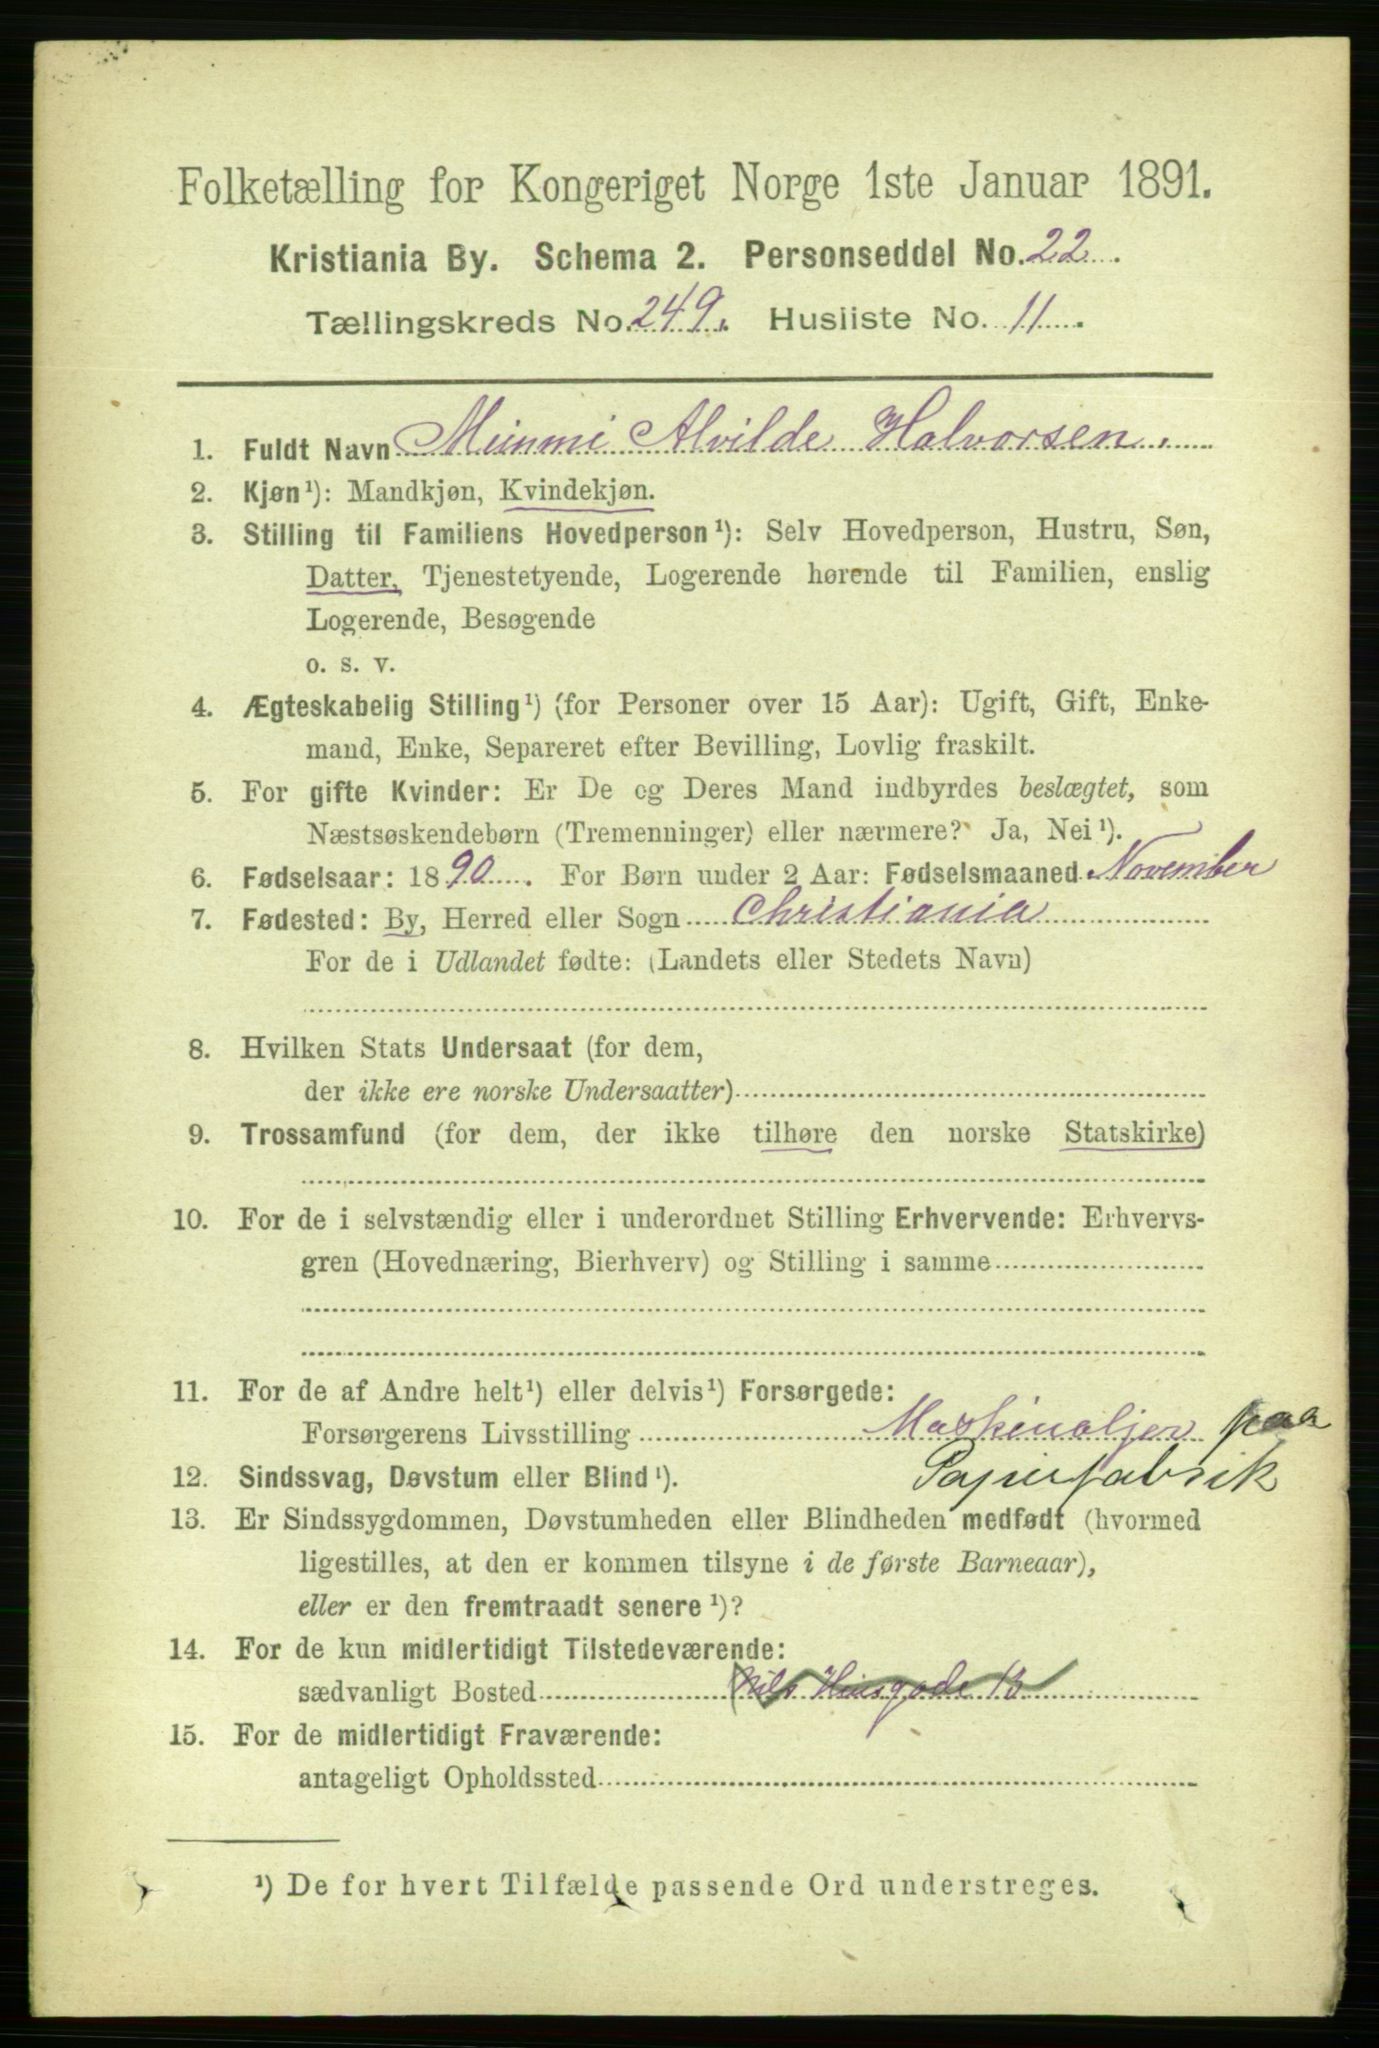 Folketælling for Kongeriget Norge 1ste Januar 1891.
Kristiania By. Schema 2. Personseddel No. 22.
Tællingskreds No. 249. Husliste No. 11.
1. Fuldt Navn Mimmi Alvilde Halvorsen.
2. Kjøn¹): Mandkjøn, Kvindekjøn.
3. Stilling til Familiens Hovedperson¹): Selv Hovedperson, Hustru, Søn,
Datter, Tjenestetyende, Logerende hørende til Familien, enslig
Logerende, Besøgende
o. s. v.
4. Ægteskabelig Stilling¹) (for Personer over 15 Aar): Ugift, Gift, Enke-
mand, Enke, Separeret efter Bevilling, Lovlig fraskilt.
5. For gifte Kvinder: Er De og Deres Mand indbyrdes beslægtet, som
Næstsøskendebørn (Tremenninger) eller nærmere? Ja, Nei¹).
6. Fødselsaar: 1890. For Børn under 2 Aar: Fødselsmaaned November
7. Fødested: By, Herred eller Sogn Christiania
For de i Udlandet fødte: (Landets eller Stedets Navn)
8. Hvilken Stats Undersaat (for dem,
der ikke ere norske Undersaatter)
9. Trossamfund (for dem, der ikke tilhøre den norske Statskirke)
10. For de i selvstændig eller i underordnet Stilling Erhvervende: Erhvervs-
gren (Hovednæring, Bierhverv) og Stilling i samme
11. For de af Andre helt¹) eller delvis¹) Forsørgede:
Forsørgerens Livsstilling Maskinoljer paa
Papirfabrik
12. Sindssvag, Døvstum eller Blind¹).
13. Er Sindssygdommen, Døvstumheden eller Blindheden medfødt (hvormed
ligestilles, at den er kommen tilsyne i de første Barneaar),
eller er den fremtraadt senere¹)?
14. For de kun midlertidigt Tilstedeværende:
sædvanligt Bosted 13
15. For de midlertidigt Fraværende:
antageligt Opholdssted
¹) De for hvert Tilfælde passende Ord understreges.